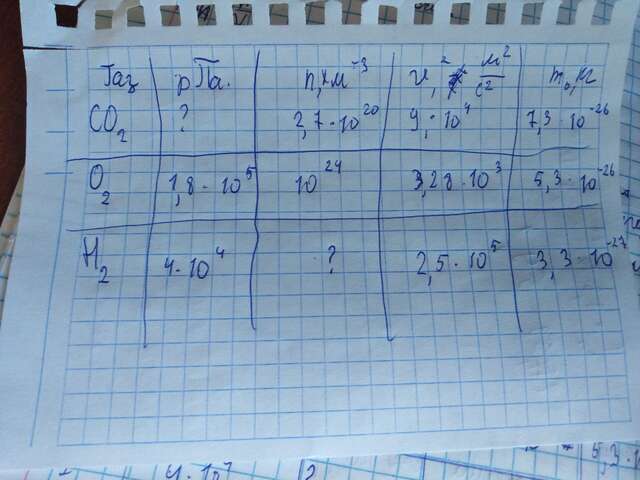 Газ pПа. n, м⁻³ v², м²/с² m₀, кг
CO₂ ? 2,7·10²⁰ 9,·10⁴ 7,3·10⁻²⁶
O₂ 1,8·10⁵ 10²⁴ 3,28·10³ 5,3·10⁻²⁶
H₂ 4·10⁴ ? 2,5·10⁵ 3,3·10⁻²⁷